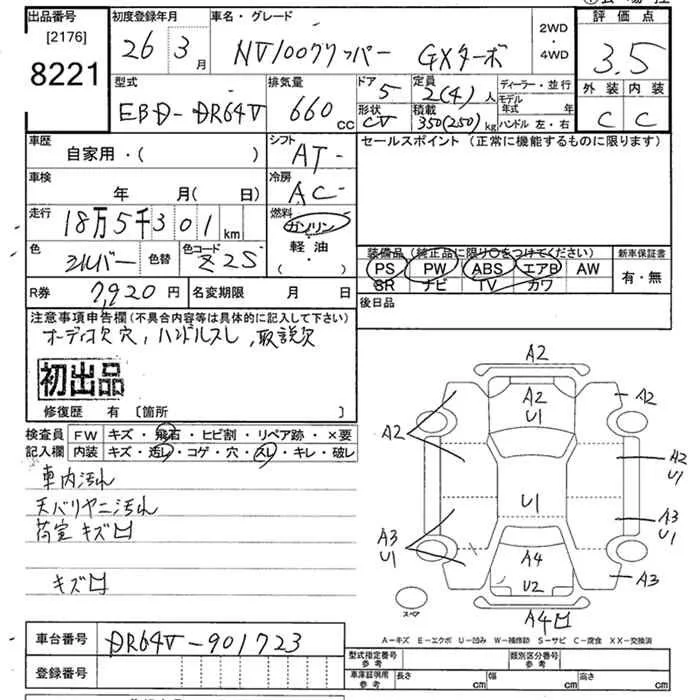 出品番号 初度登録年月 車名・グレード 2WD・4WD 評価点
[2176]
8221
26 3月 NV100クリッパー GXターボ 3.5
型式 排気量 ドア 定員 ディーラー・並行 外装 内装
EBD-DR64V 660cc 5 2(4)人 モデル年式 年 C C
形状 積載 ハンドル 左・右
CV 350(250)kg
車歴 シフト セールスポイント (正常に機能するものに限ります)
自家用・( ) AT-
車検 冷房
年 月( 日) AC-
走行 燃料
18万5千301km ガソリン
軽油
( ・ )
色 色替 色コード
シルバー Z2S
装備品 (純正品に限り○をつけてください) 新車保証書
PS PW ABS エアB AW 有・無
SR ナビ TV カワ
R券 7,920円 名変期限 月 日
後日品
注意事項申告欄(不具合内容等は具体的に記入して下さい)
オーディオ欠穴, ハンドルスレ, 取説欠
初出品
修復歴 有 [箇所 ]
検査員 FW キズ・飛石・ヒビ割・リペア跡・×要
記入欄 内装 キズ・汚レ・コゲ・穴・スレ・キレ・破レ
車内汚れ
天バリヤニ汚れ
荷室キズ凹
キズ凹
A2
A2
U1
A2
A2
A2
U1
U1
A3
U1
A3
U1
A4
U2
A3
A4凹
スペア
A-キズ E-エクボ U-凹み W-補修跡 S-サビ C-腐食 XX-交換済
車台番号 DR64V-901723
登録番号
型式指定番号 参考 類別区分番号 参考
車庫証明用 参考 長さ cm 幅 cm 高さ cm